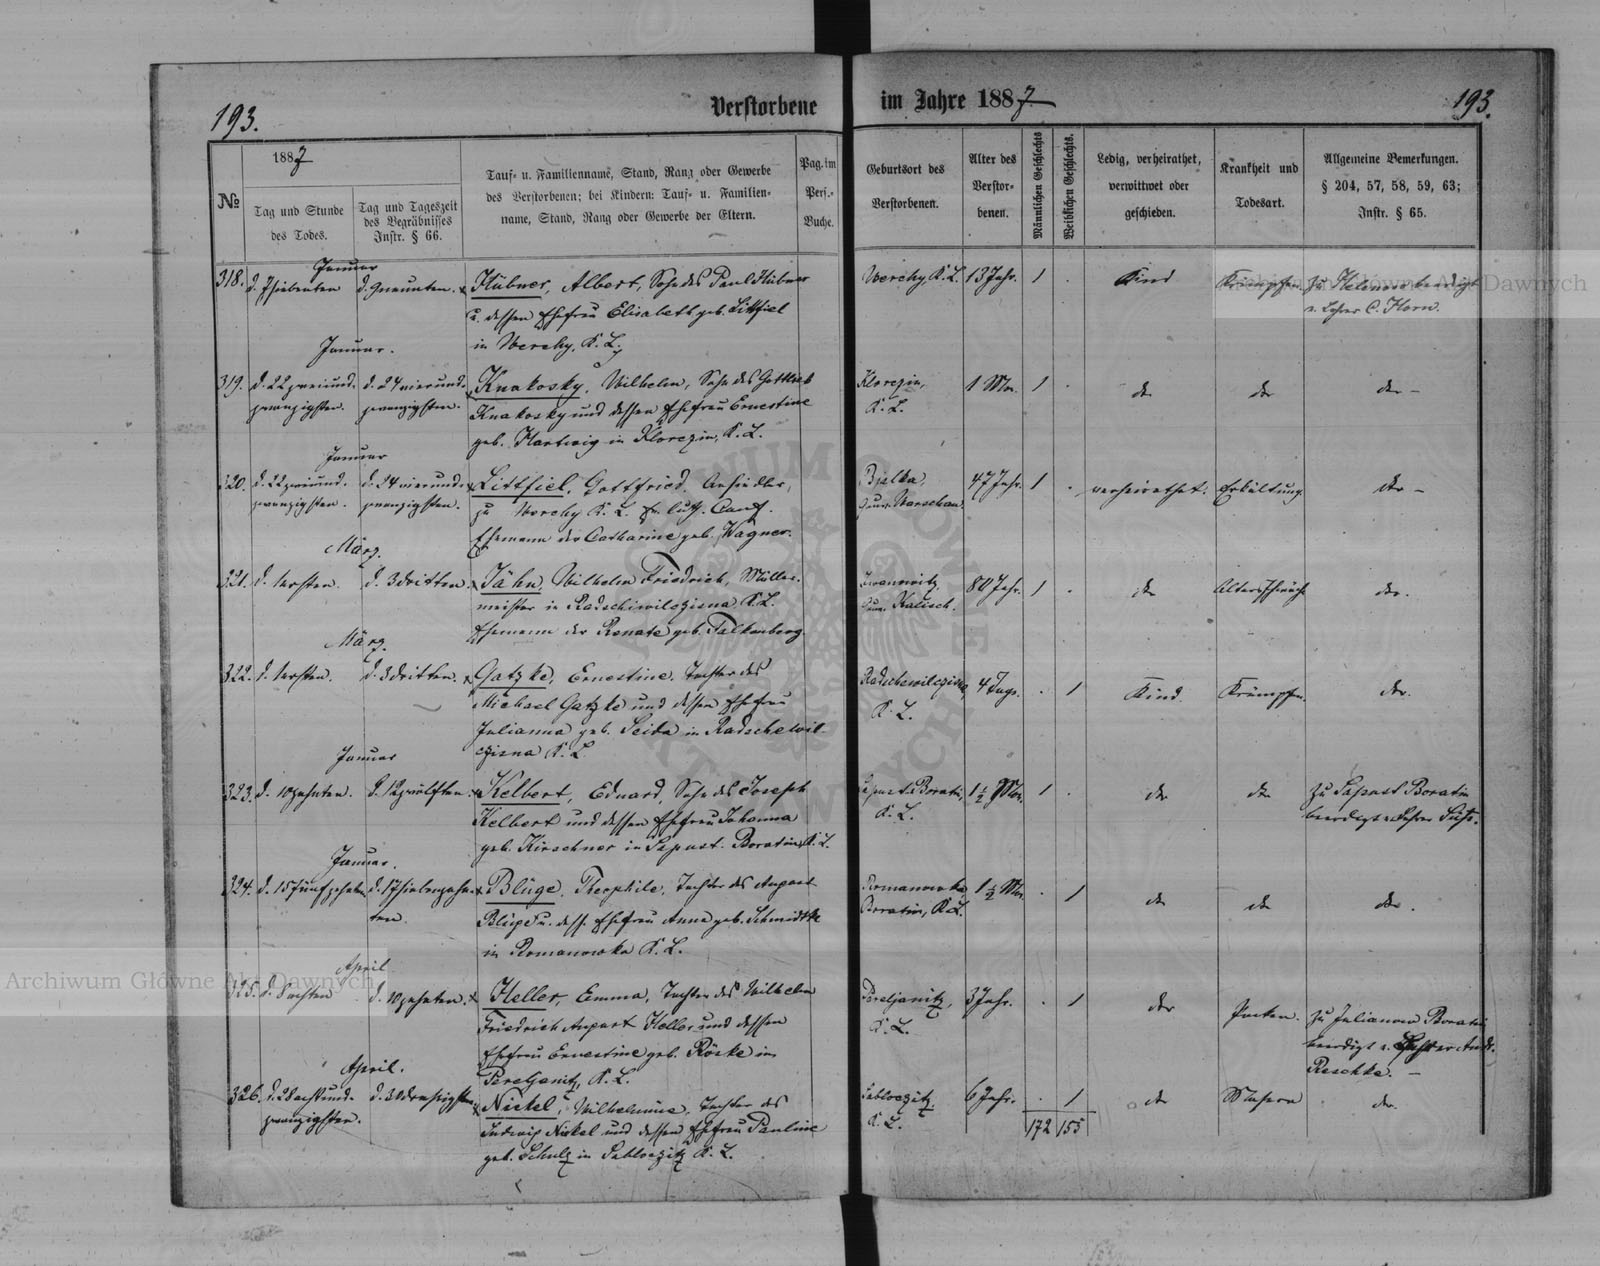 193.
Verstorbene
im Jahre 1887
193.
№
1887
Tag und Stunde
des Todes.
Tag und Tageszeit
des Begräbnisses
Instr. § 66.
Tauf- u. Familienname, Stand, Rang oder Gewerbe
des Verstorbenen; bei Kindern: Tauf- u. Familien-
name, Stand, Rang oder Gewerbe der Eltern.
Pag. im
Pers.-
Buche.
Geburtsort des
Verstorbenen.
Alter des
Verstor-
benen.
Männlichen Geschlechts
Weiblichen Geschlechts.
Ledig, verheirathet,
verwittwet oder
geschieden.
Krankheit und
Todesart.
Allgemeine Bemerkungen.
§ 204, 57, 58, 59, 63;
Instr. § 65.
Januar
318. d. 7 siebenten d. 9 neunten. Hübner, Albert, Sohn des Paul Hübner Werchy, K. L. 13 Jahr. 1 . Kind Krämpfen. zu Helenow beerdigt
u. dessen Ehefrau Elisabeth geb. Littfiel v. Lehrer C. Horn.
in Werchy, K. L.
Januar.
319. d. 22 zweiund- d. 24 vierund- Knakosky, Wilhelm, Sohn des Gottlieb Klorezin, 1 Mon. 1 . do do do –
zwanzigsten. zwanzigsten. Knakosky und dessen Ehefrau Ernestine K. L.
geb. Hartwig in Klorezin, K. L.
Januar
320. d. 22 zweiund- d. 24 vierund- Littfiel, Gottfried, Ansiedler, Bjelka, 47 Jahr. 1 . verheirathet. Erkältung. do –
zwanzigsten. zwanzigsten. zu Werchy K. L. ev. luth. Conf. Gouv. Warschau.
Ehemann der Catharine geb. Wagner.
März.
321. d. 1 ersten. d. 3 dritten. Jähn, Wilhelm Friedrich, Müller- 80 Jahr. 1 . do Altersschwäche do.
meister in Radschiwilozisna K. L. Gouv. Kalisch.
Ehemann der Renate geb. Falkenberg.
März.
322. d. 1 ersten. d. 3 dritten. Gatzke, Ernestine, Tochter des 4 Tage. . 1 Kind. Krämpfen. do.
Michael Gatzke und dessen Ehefrau K. L.
Julianna geb. Seida in Radschewil-
czisna K. L.
Januar
323. d. 10 zehnten. d. 12 zwölften. Kelbert, Eduard, Sohn des Joseph 1 1/2 Mon. 1 . do do zu Sapust Boratin
Kelbert und dessen Ehefrau Johanna K. L. beerdigt v. Lehrer
geb. Kirschner in Sapust. Boratin, K. L.
Januar.
324. d. 15 fünfzehnten d. 17 siebenzehn- Blüge, Theophile, Tochter des August Romanowka 1 1/2 Mon. . 1 do do do.
ten. Blüge u. dess. Ehefrau Anna geb. Schmidtke Boratin, K. L.
in Romanowka K. L.
April
325. d. 8 achten d. 10 zehnten. Heller, Emma, Tochter des Wilhelm Pereljanitz, 3 Jahr. . 1 do Pocken. zu Julianow Boratin
Friedrich August Heller und dessen K. L. beerdigt v.
Ehefrau Ernestine geb. Röske in Reschke. –
Pereljanitz, K. L.
April.
326. d. 28 achtund- d. 30 dreissigsten Nickel, Wilhelmine, Tochter des Jablozitz, 6 Jahr. . 1 do Masern do.
zwanzigsten. Ludwig Nickel und dessen Ehefrau Pauline K. L. 172 155
geb. Schulz in Jablozitz K. L.
Archiwum Główne Akt Dawnych
Archiwum Główne Akt Dawnych